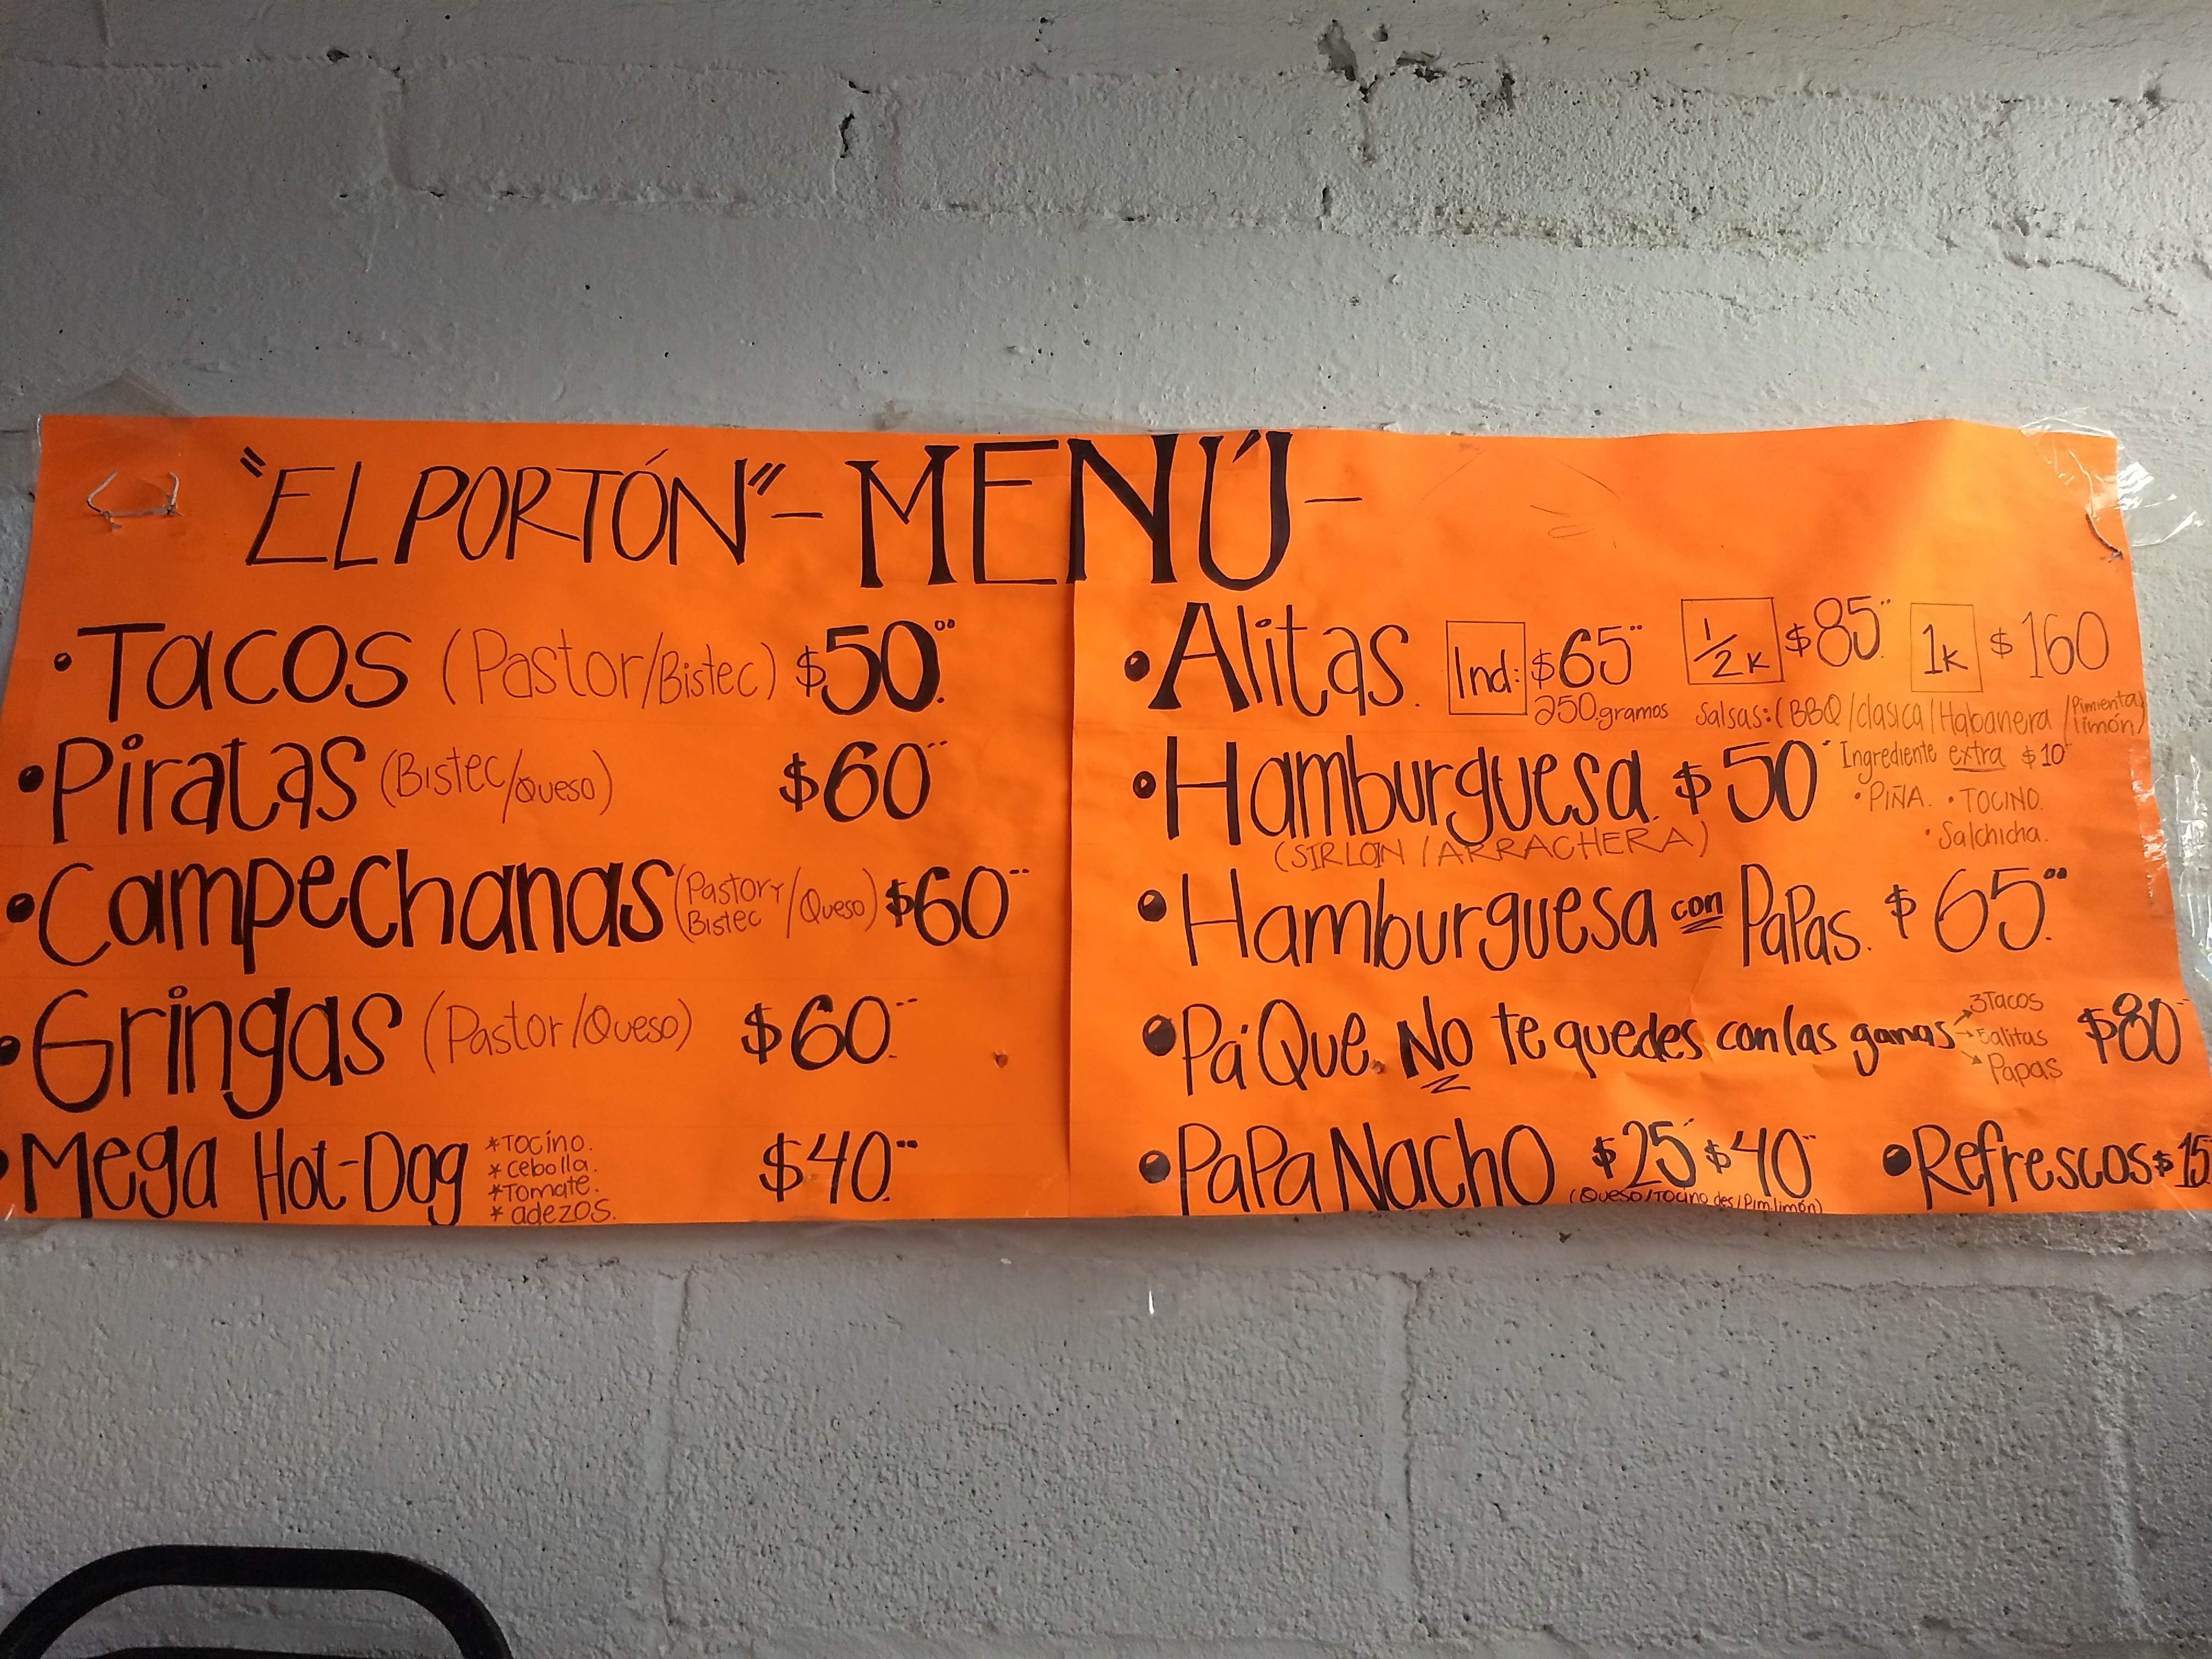 "EL PORTÓN" - MENÚ -
• Tacos (Pastor/Bistec) $50.00
• Piratas (Bistec/Queso) $60
• Campechanas (Pastor y Bistec / Queso) $60
• Gringas (Pastor/Queso) $60.
• Mega Hot-Dog $40.
* Tocino.
* cebolla.
* Tomate.
* adezos.
• Alitas. Ind: $65 1/2 K $85. 1K $160
250.gramos Salsas: (BBQ/clasica/Habanera/Pimienta limón)
• Hamburguesa. $50 Ingrediente extra $10
(SIRLOIN / ARRACHERA) • PIÑA. • TOCINO.
• Salchicha.
• Hamburguesa con PaPas. $65.00
• Pa' Que NO te quedes con las ganas $80
3 Tacos
5 alitas
Papas
• PaPa Nacho $25 $40
(Queso/Tocino des/Pim.limón)
• Refrescos $15